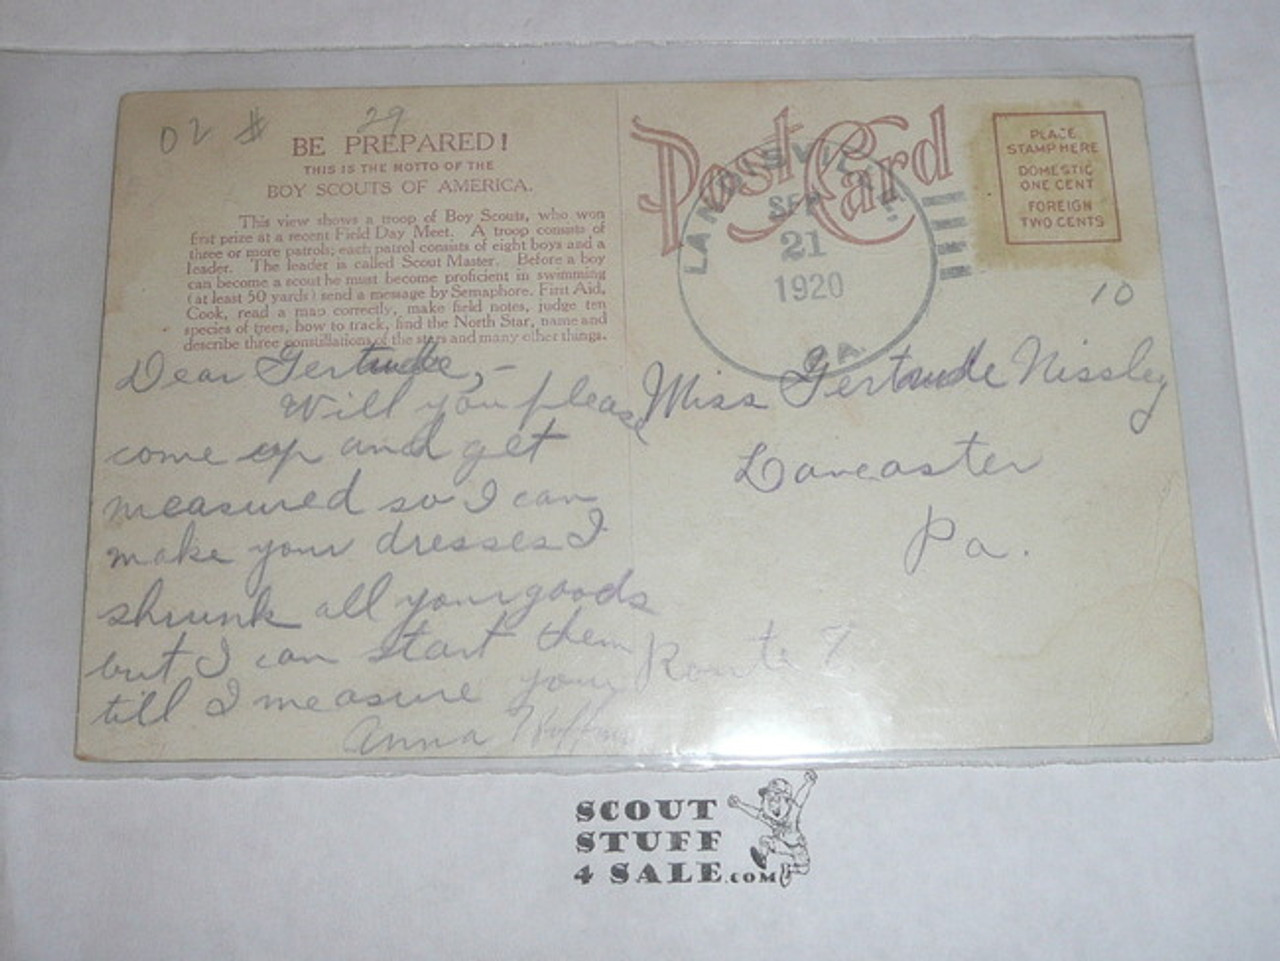 02 # 29
BE PREPARED!
THIS IS THE MOTTO OF THE
BOY SCOUTS OF AMERICA.
This view shows a troop of Boy Scouts, who won
first prize at a recent Field Day Meet. A troop consists of
three or more patrols; each patrol consists of eight boys and a
leader. The leader is called Scout Master. Before a boy
can become a scout he must become proficient in swimming
(at least 50 yards) send a message by Semaphore. First Aid,
Cook, read a map correctly, make field notes, judge ten
species of trees, how to track, find the North Star, name and
describe three constillations of the stars and many other things.
Dear Gertrude,-
Will you please
come up and get
measured so I can
make your dresses I
shrunk all your goods
but I can start them
till I measure your
Anna
Post Card
LANDISVILLE
SEP
21
1920
PA.
PLACE
STAMP HERE
DOMESTIC
ONE CENT
FOREIGN
TWO CENTS
10
Miss Gertrude Nissley
Lancaster
Pa.
Route 7
SCOUT
STUFF
4 SALE.COM